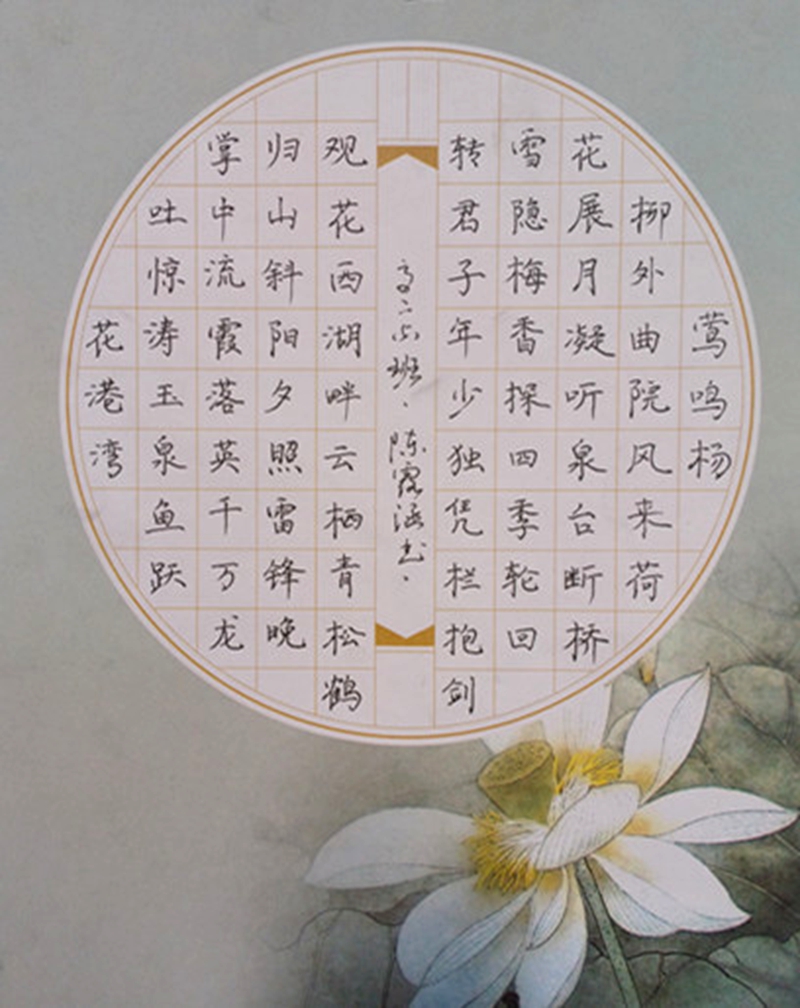 莺鸣杨
柳外曲院风来荷
花展月凝听泉台断桥
雪隐梅香探四季轮回
转君子年少独凭栏抱剑
观花西湖畔云栖青松鹤
归山斜阳夕照雷锋晚
掌中流霞落英千万龙
吐惊涛玉泉鱼跃
花港湾
高二 班.陈露涵书.